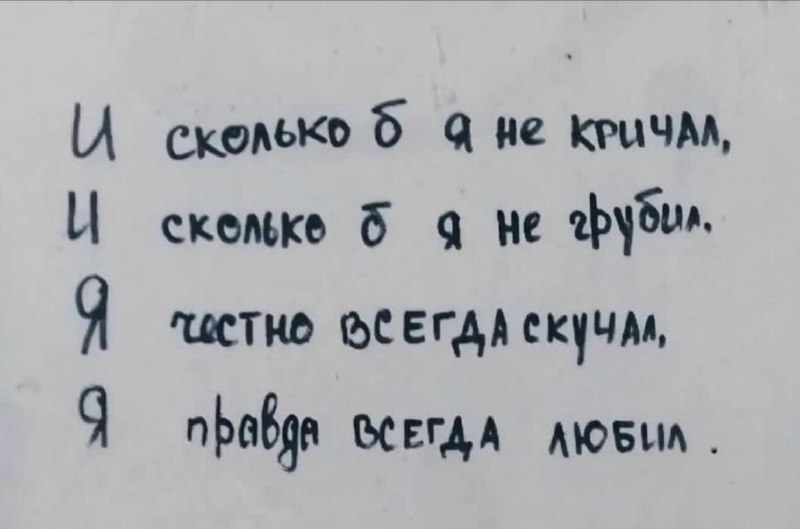 И сколько б я не кричал,
И сколько б я не грубил.
Я честно всегда скучал,
Я правда всегда любил.